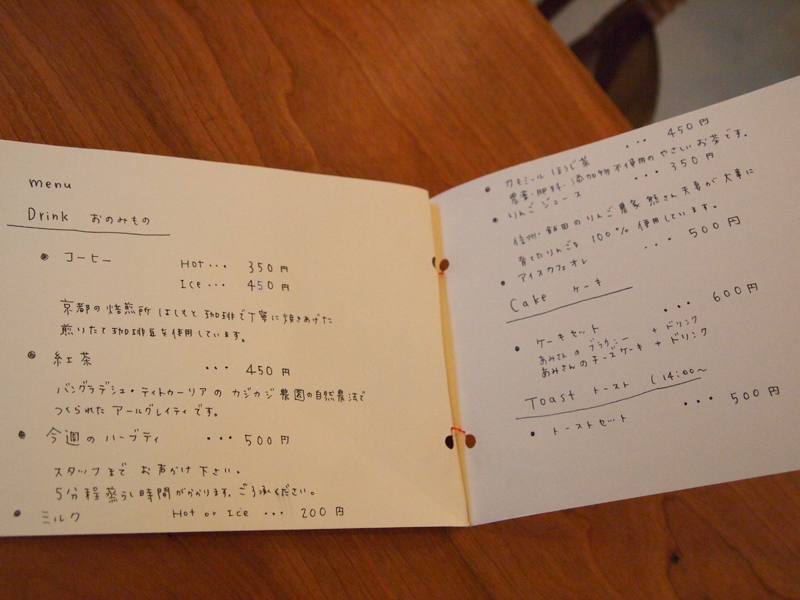 menu
Drink おのみもの
・コーヒー Hot ... 350円
Ice ... 450円
京都の焙煎所 はしもと珈琲で丁寧に焼きあげた
煎りたて珈琲豆を使用しています。
・紅茶 ... 450円
バングラデシュ・ティトゥーリアの カジカジ農園の自然農法で
つくられた アールグレイティです。
・今週のハーブティ ... 500円
スタッフまで お声がけ下さい。
5分程蒸らし時間がかかります。ご了承ください。
・ミルク Hot or Ice ... 200円
・カモミールほうじ茶 ... 450円
農薬・肥料・添加物不使用のやさしいお茶です。
・りんごジュース ... 350円
信州・飯田のりんご農家 熊さん夫妻が大事に
育てたりんごを100%使用しています。
・アイスカフェオレ ... 500円
Cake ケーキ
・ケーキセット ... 600円
あみさんのブラウニー + ドリンク
あみさんのチーズケーキ + ドリンク
Toast トースト (14:00〜
・トーストセット ... 500円